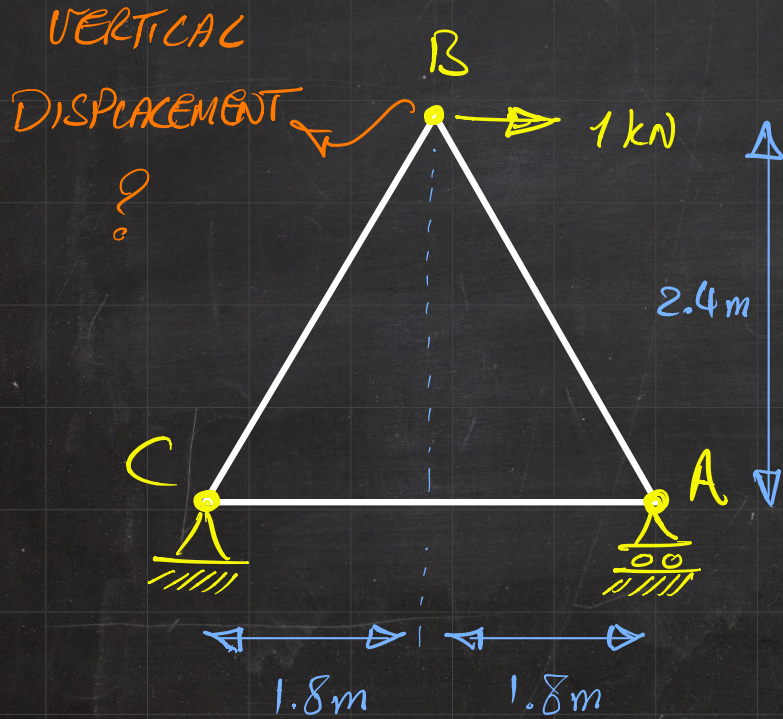 VERTICAL
DISPLACEMENT
?
B
1 kN
2.4m
C
A
1.8m
1.8m